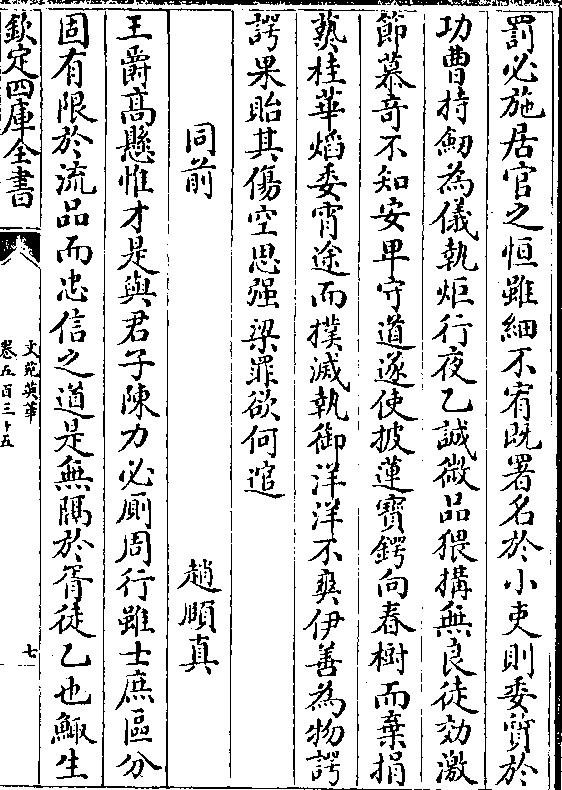 罰必施居官之恒雖細不宥既署名於小吏則委質於
功曹持劒為儀執炬行夜乙誠微品猥搆無良徒効激
節慕奇不知安卑守道遂使披蓮寶鍔向春樹而棄捐
爇桂華熖委宵途而撲滅執御洋洋不爽伊善為物諤
諤果貽其傷空思强梁罪欲何逭
同前
趙頥真
王爵髙懸惟才是與君子陳力必厠周行雖士庶區分
固有限於流品而忠信之道是無隔於胥徒乙也鯫生
欽定四庫全書
文苑英華
卷五百三十五
七